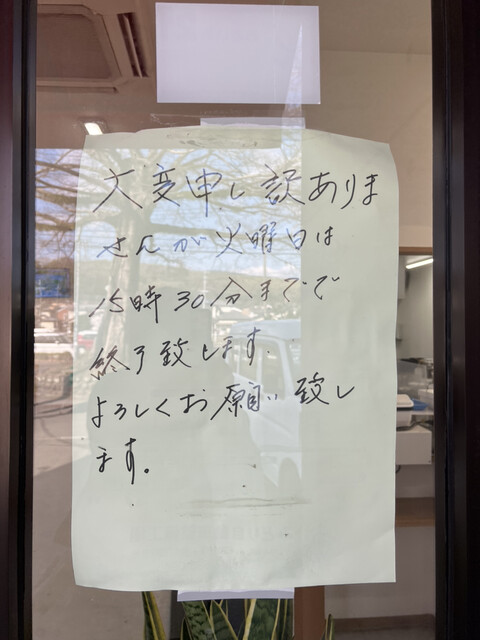 大変申し訳ありま
せんが火曜日は
15時30分までで
終了致します.
よろしくお願い致し
ます。